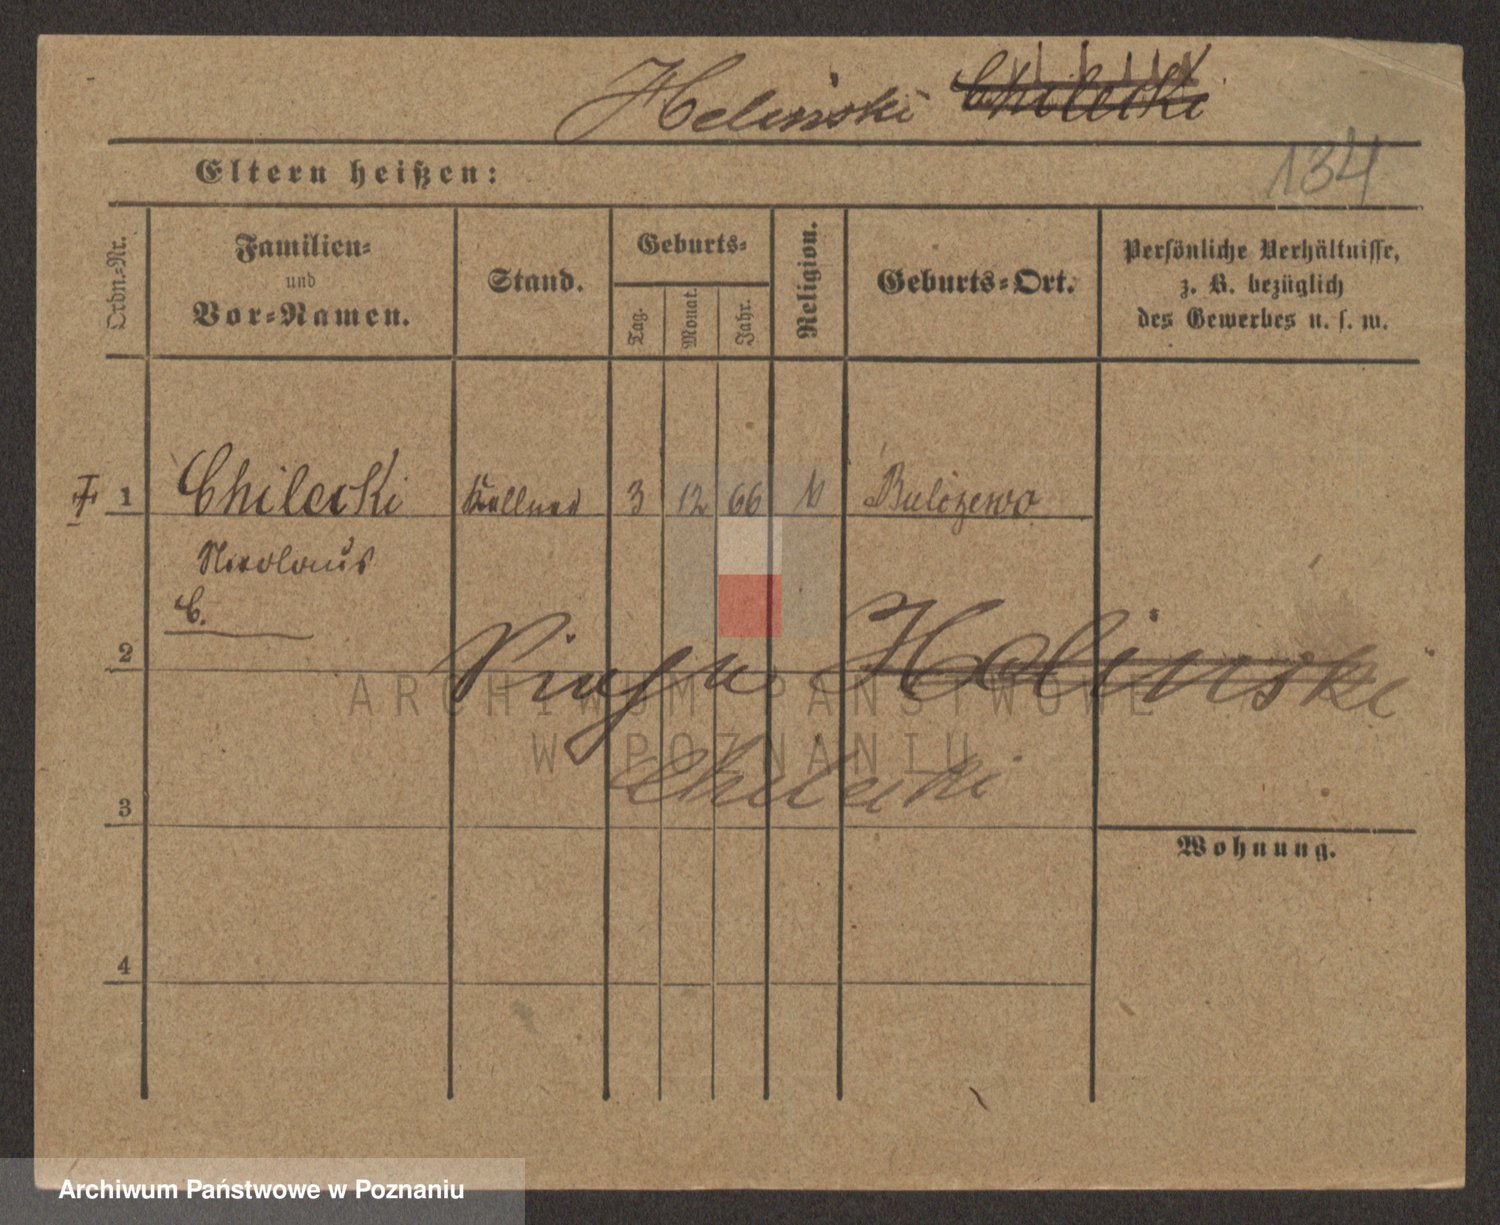 Helinski Chilecki
134
Eltern heißen:
Ordn.-Nr.
Familien-
und
Vor-Namen.
Stand.
Geburts-
Tag.
Monat.
Jahr.
Religion.
Geburts-Ort.
Persönliche Verhältnisse,
z. B. bezüglich
des Gewerbes u. s. w.
1 Chilecki Kellner 3 12 66 Bulczewo
Nicolaus
C.
2
Siehe Helinski
Chilecki
3
Wohnung.
4
ARCHIWUM PAŃSTWOWE
W POZNANIU
Archiwum Państwowe w Poznaniu